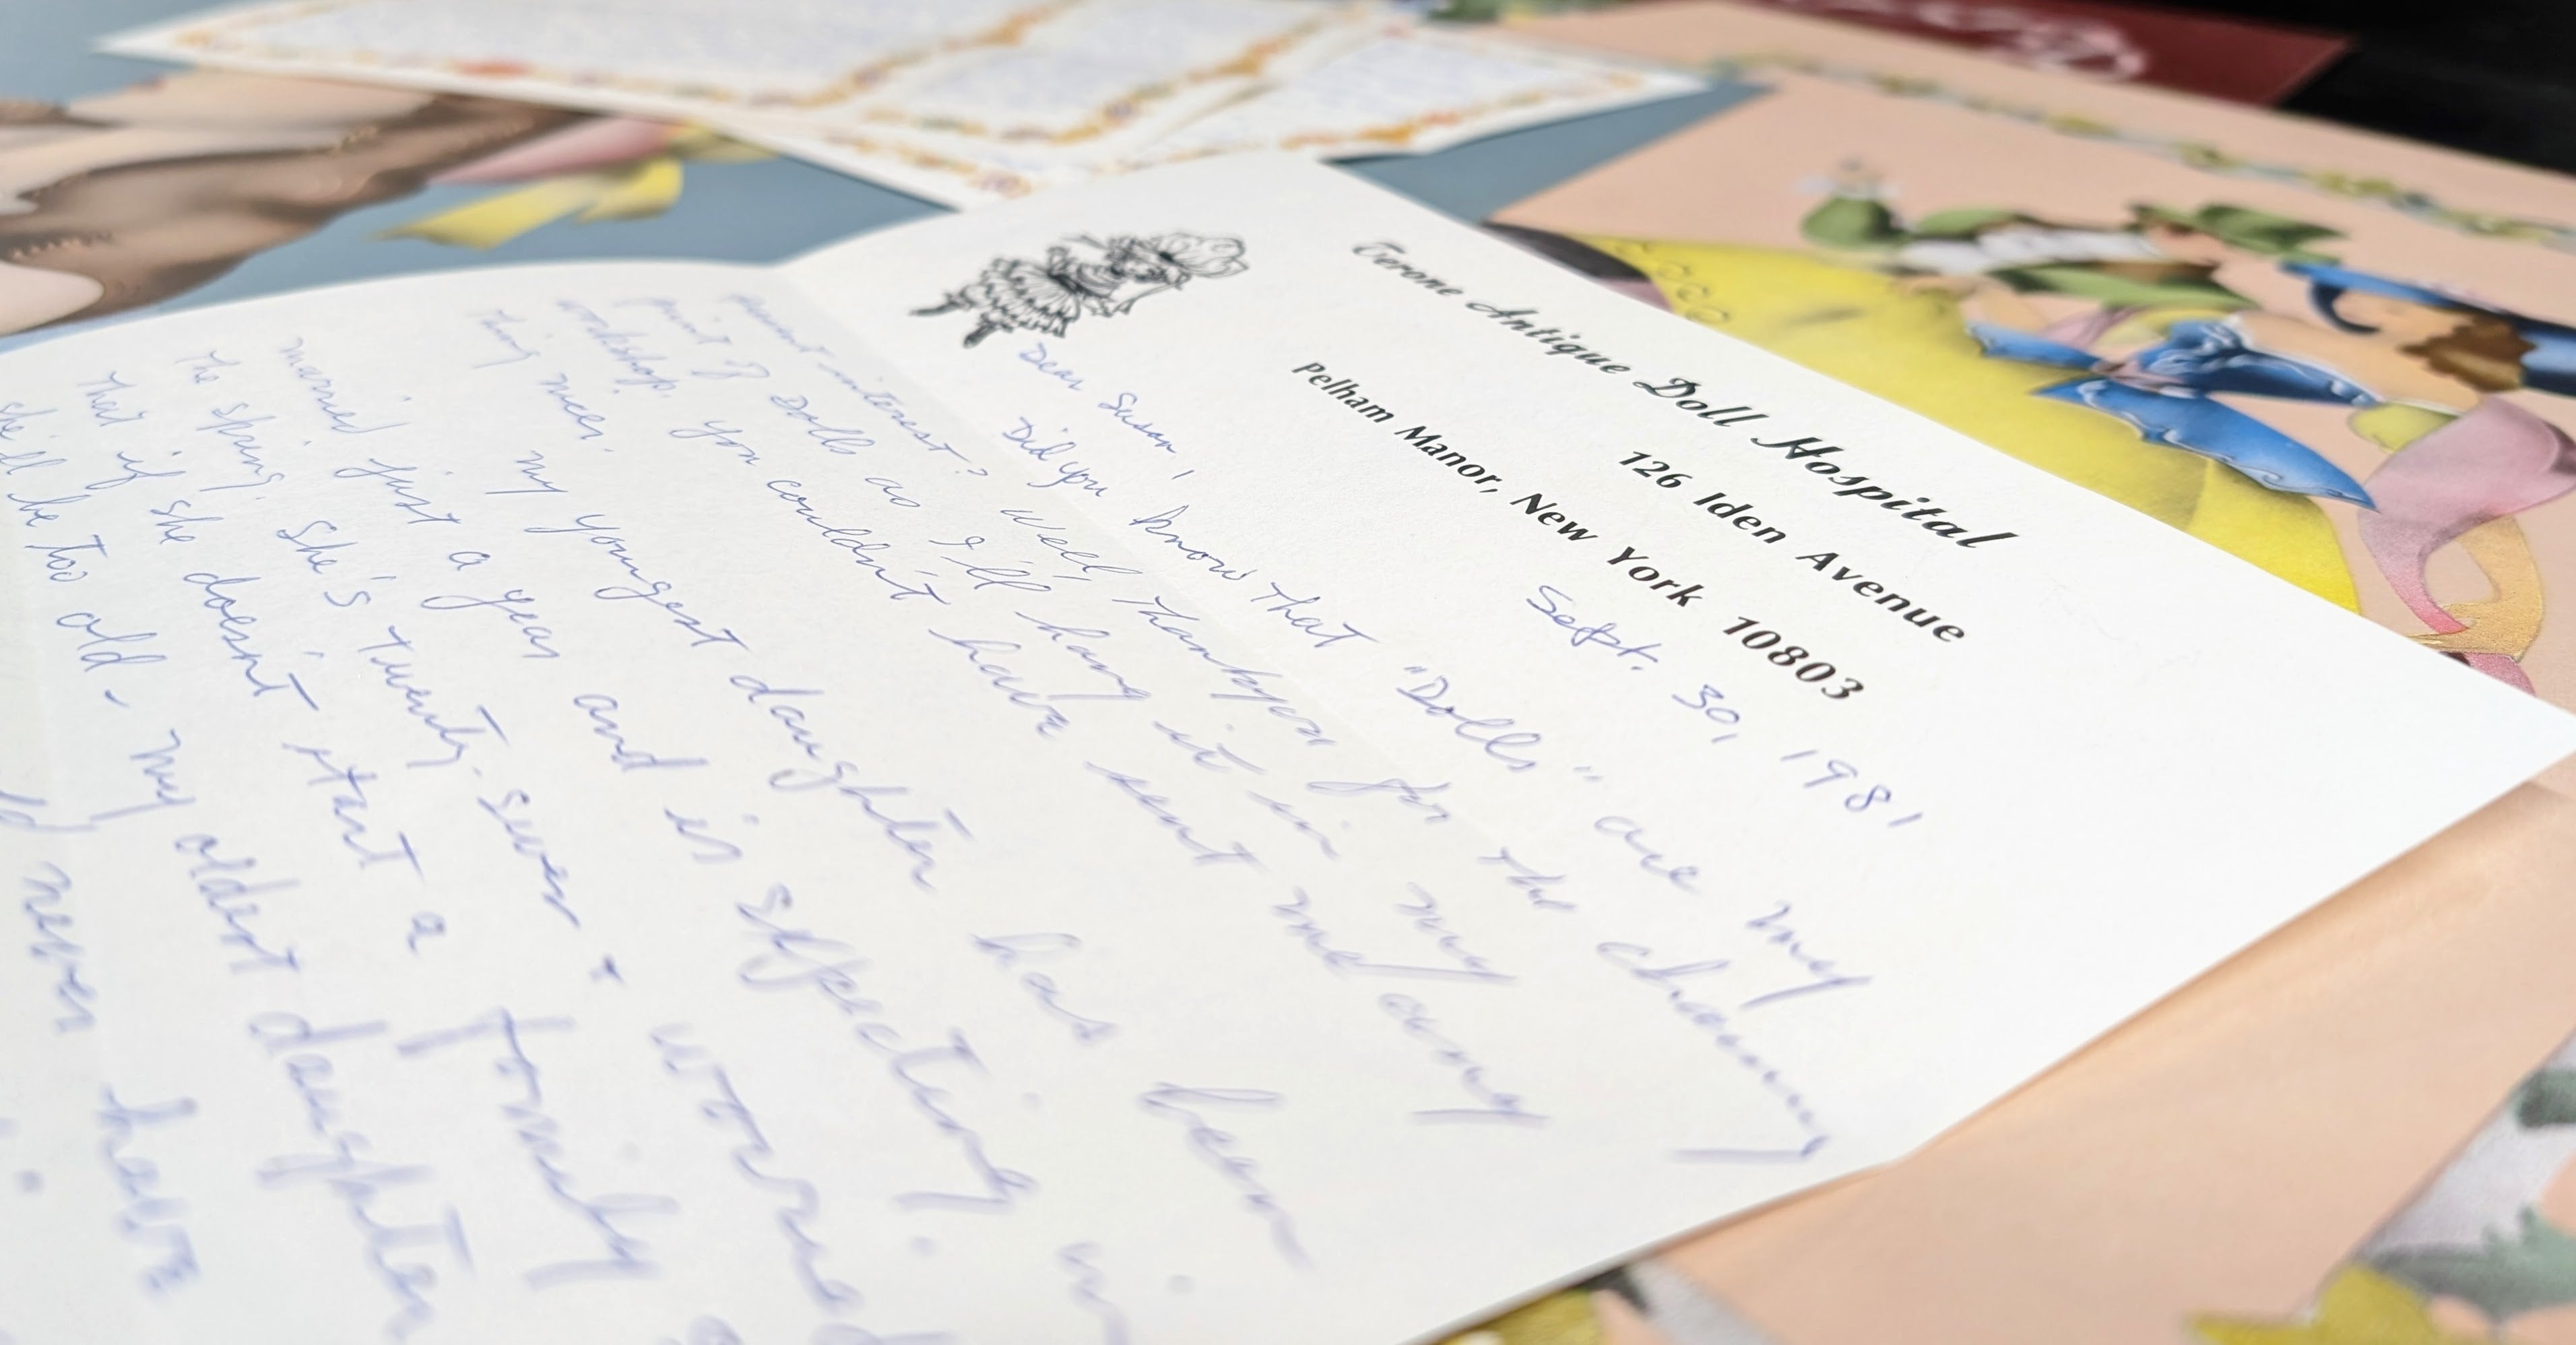 Verone Antique Doll Hospital
126 Iden Avenue
Pelham Manor, New York 10803
Sept. 30, 1981
Dear Susan,
Did you know that "Dolls" are my
interest? Well, thankyou for the charming
print of Dolls as I'll hang it in my
workshop. You couldn't have sent me any
thing nicer.
My youngest daughter has been
married just a year and is expecting in
the spring. She's twenty-seven + worried
that if she doesn't start a family
she'll be too old - My oldest daughter
never have